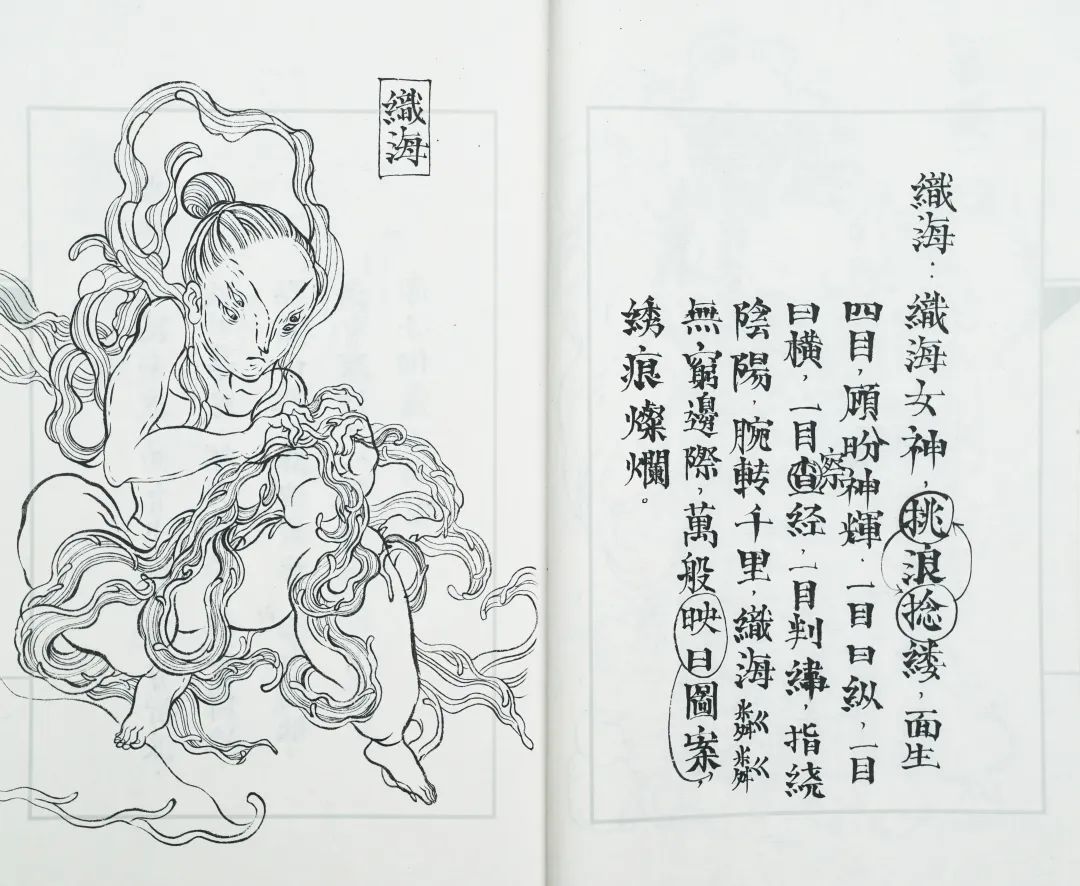 織海：織海女神，挑浪捻缕，面生
四目，頋盼神輝．一目曰纵，一目
察
曰横，一目查经，一目判緯，指绕
陰陽，腕轉千里，織海粼粼
無窮邊際，萬般映日圖案，
綉痕燦爛。
織海